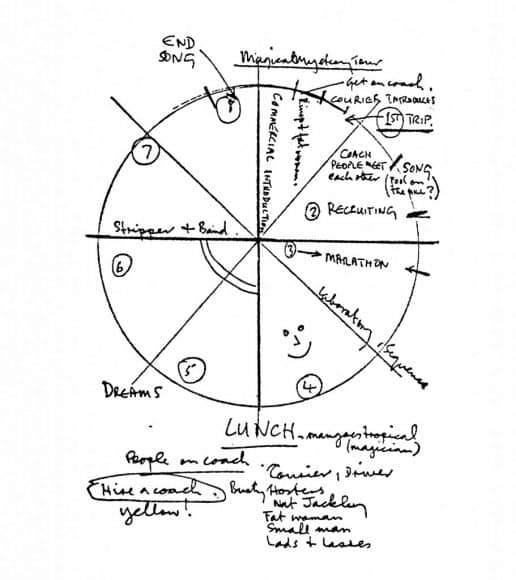 END
SONG
Magical Mystery Tour
Get on coach.
COURIER INTRODUCES
1ST TRIP.
COMMERCIAL INTRODUCTION
Ringo & fat woman.
COACH
PEOPLE MEET
each other
SONG
(Fool on
the Hill?)
② RECRUITING
③ → MARATHON
Laboratory Sequence
④
⑤
DREAMS
⑥
Stripper + Band.
⑦
⑧
LUNCH - mangoes tropical
(magician)
People on coach
Courier, Driver
Hire a coach.
Busty Hostess
yellow!
Nat Jackley
Fat woman
Small man
Lads + Lasses